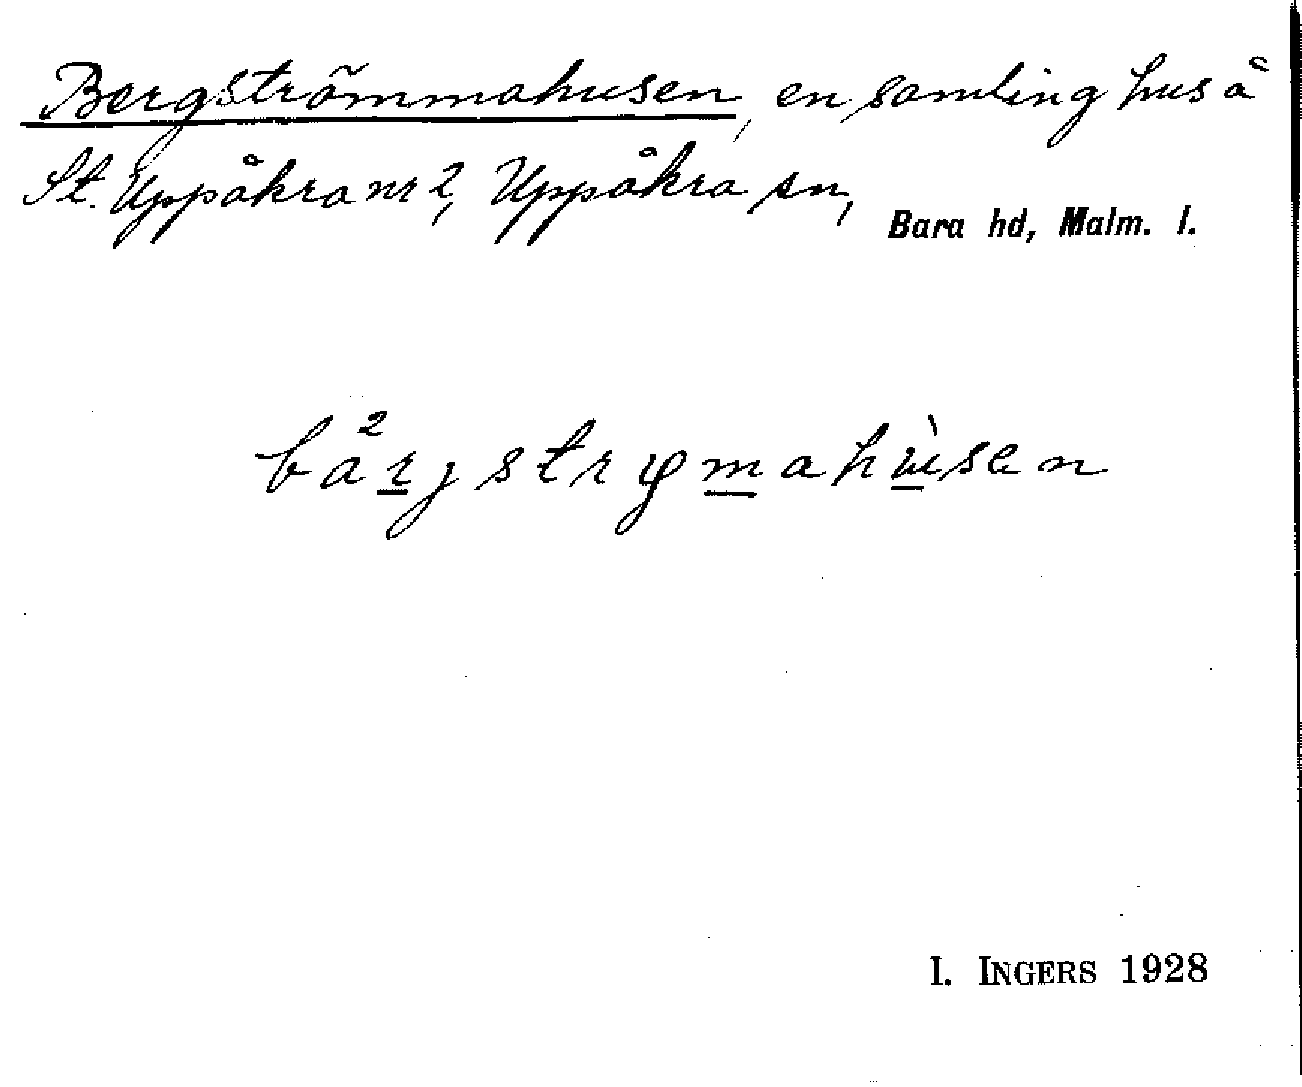 Bergströmmahusen, en samling hus å
St. Uppåkra nr 2, Uppåkra sn,
Bara hd, Malm. l.
ba²rjstrφmahùsen
I. INGERS 1928